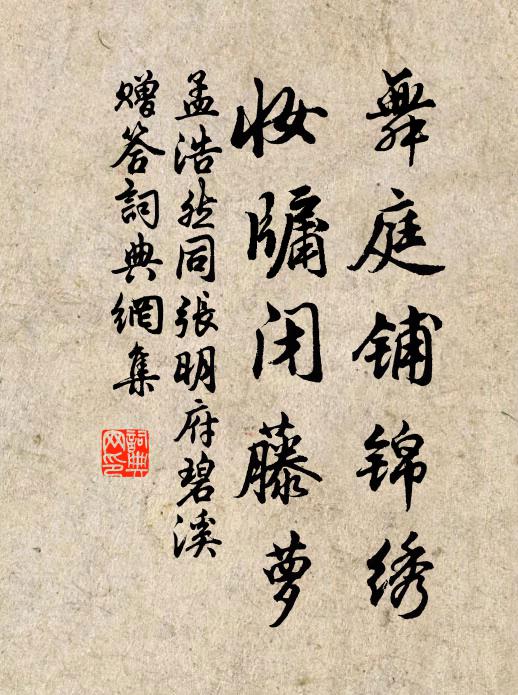 舞庭铺锦绣
妆牖闭藤萝
孟浩然同張明府碧溪
贈答詞典網集
詞典
网印